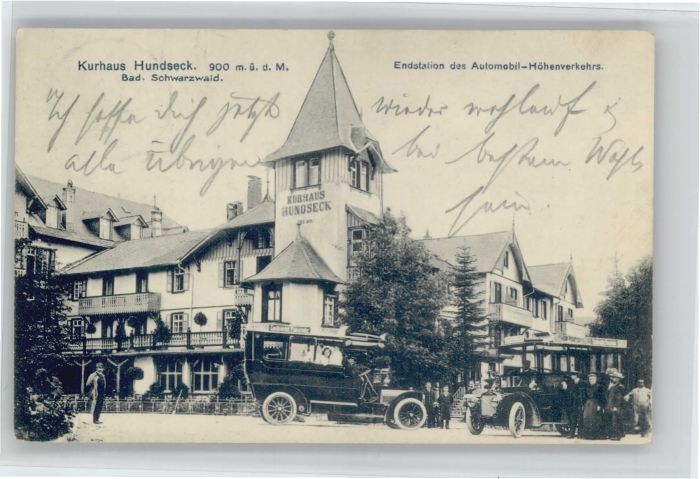 Kurhaus Hundseck. 900 m. ü. d. M.
Bad. Schwarzwald.
Endstation des Automobil-Höhenverkehrs.
Ich hoffe Dich jetzt wieder wohlauf &
alle übrigen bei bestem Wohl
sein.
KURHAUS
HUNDSECK